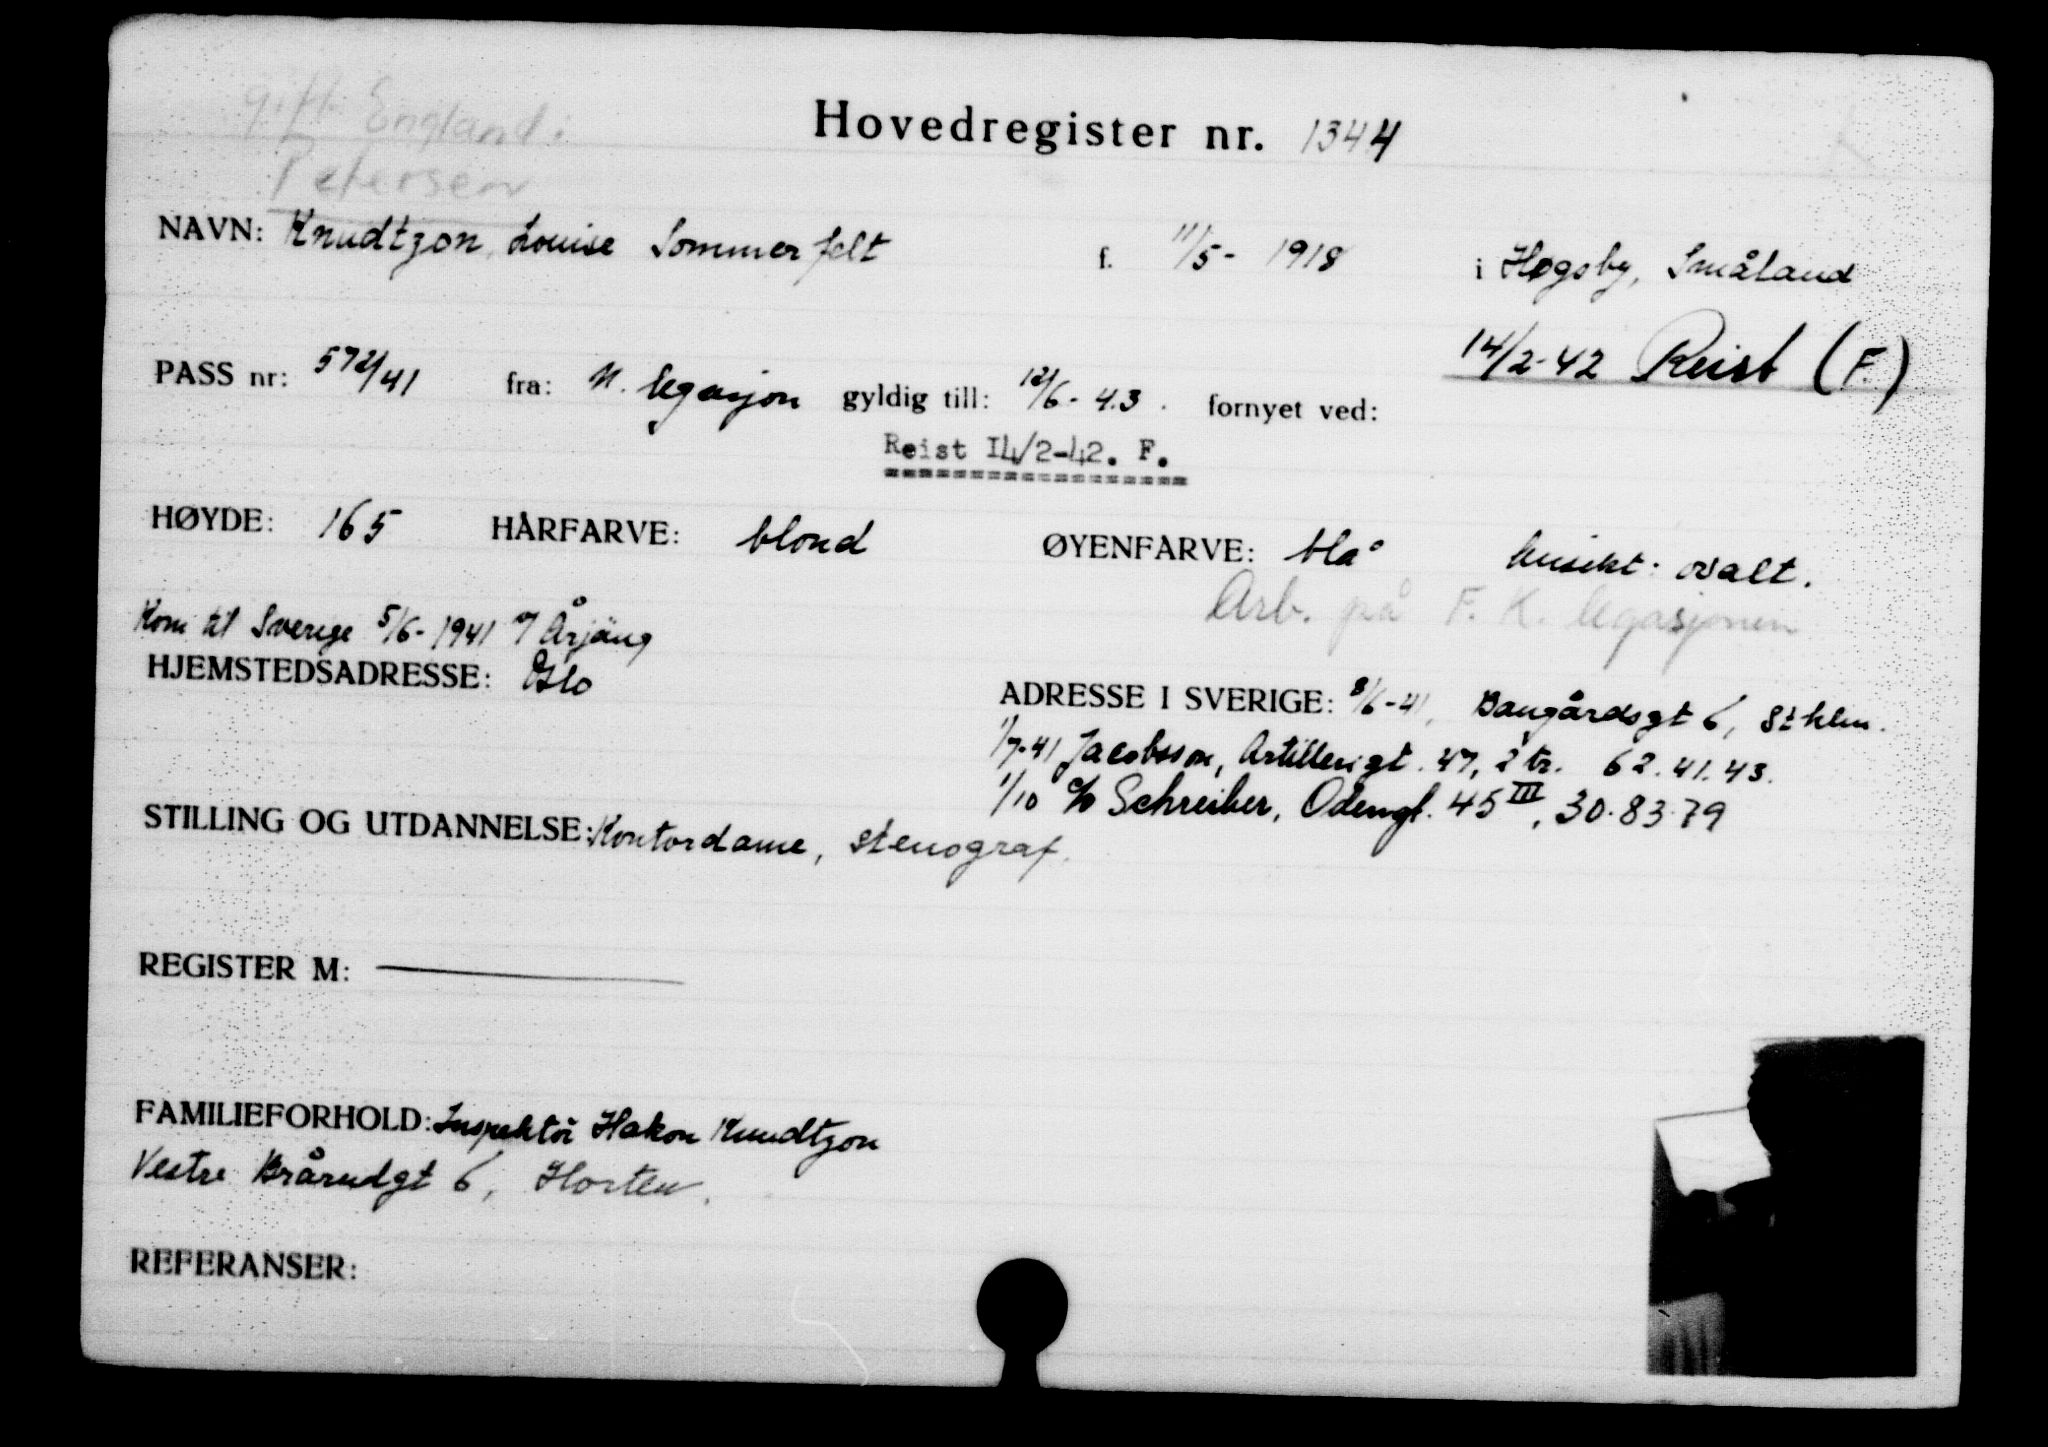 gift England:
Petersen
Hovedregister nr. 1344
NAVN: Knudtzon, Louise Sommerfelt f. 11/5- 1918 i Høgsby, Småland
14/2-42 Reist (F.)
PASS nr: 572/41 fra: N. legasjon gyldig till: 12/6-43. fornyet ved:
Reist I4/2-42. F.
HØYDE: 165 HÅRFARVE: blond ØYENFARVE: blå Ansikt: ovalt.
Arb. på F. K. legasjonen
Kom til Sverige 5/6-1941 Årjäng
HJEMSTEDSADRESSE: Oslo
ADRESSE I SVERIGE: 8/6-41, Baugårdsgt 6, Sthlm.
1/7-41 Jacobsson, Artillerigt. 47, 2 tr. 62.41.43.
1/10 c/o Schreiber, Odengt. 45 III, 30.83.79
STILLING OG UTDANNELSE: Kontordame, stenograf.
REGISTER M: —
FAMILIEFORHOLD: Inspektör Hakon Knudtzon
Vestre Brårudgt 6, Horten.
REFERANSER: